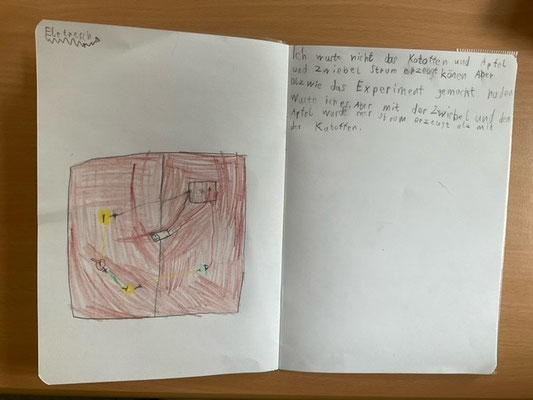 Eletresch
Ich wuste nicht das Katoffen und Apfel
und Zwiebel Strom erzeugt könen Aber
alzwie das Experiment gemacht haden
wuste ich es. Aber mit der Zwiebel und den
Apfel wurde mer Strom erzeugt als mit
der Katoffen.